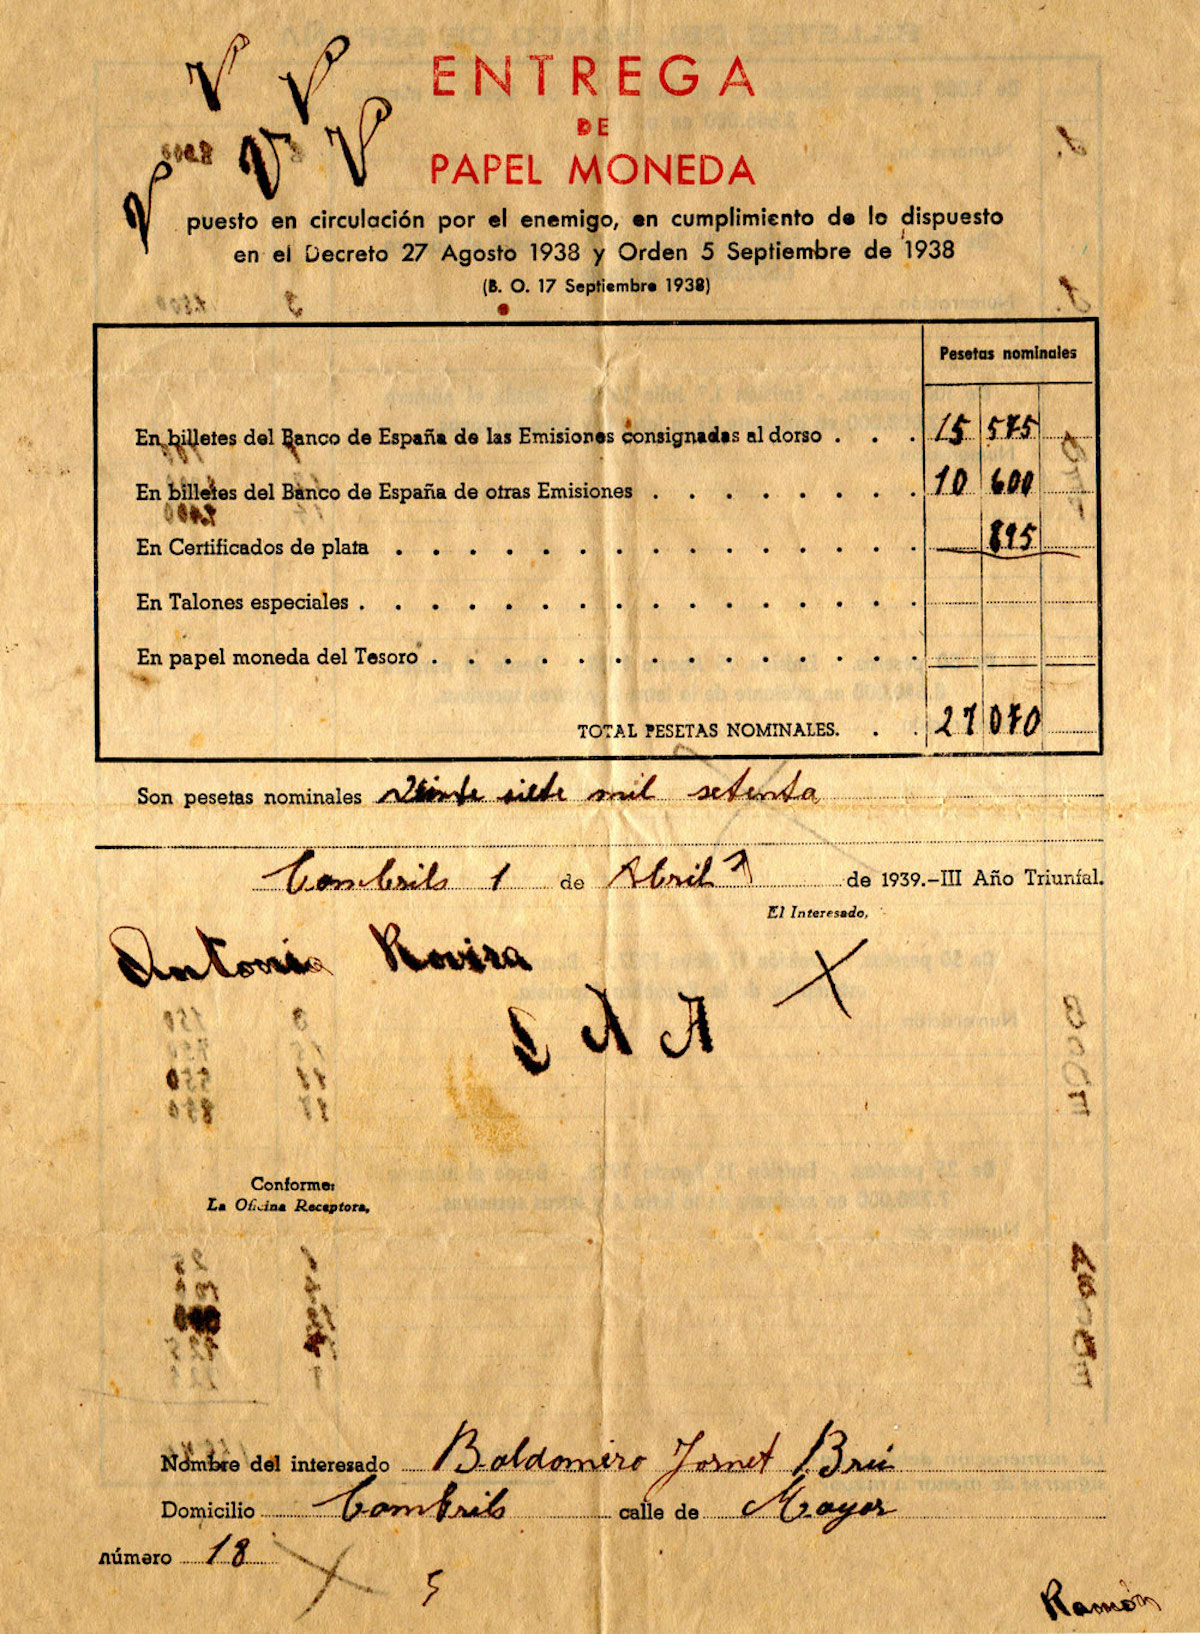 ENTREGA
DE
PAPEL MONEDA
puesto en circulación por el enemigo, en cumplimiento de lo dispuesto
en el Decreto 27 Agosto 1938 y Orden 5 Septiembre de 1938
(B. O. 17 Septiembre 1938)
Pesetas nominales
En billetes del Banco de España de las Emisiones consignadas al dorso . . . 15 575
En billetes del Banco de España de otras Emisiones . . . . . . . . 10 600
En Certificados de plata . . . . . . . . . . . . . . . 895
En Talones especiales . . . . . . . . . . . . . . . .
En papel moneda del Tesoro . . . . . . . . . . . . . .
TOTAL PESETAS NOMINALES. . . 27 070
Son pesetas nominales Veinte siete mil setenta
Cambrils 1 de Abril de 1939.-III Año Triunfal.
El Interesado,
Antonia Rovira
Conforme:
La Oficina Receptora,
Nombre del interesado Baldomero Jornet Brú
Domicilio Cambrils calle de Mayor
número 18
5
Ramón